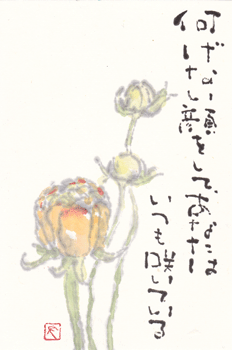 何げない顔をしてあなたは
いつも咲いている